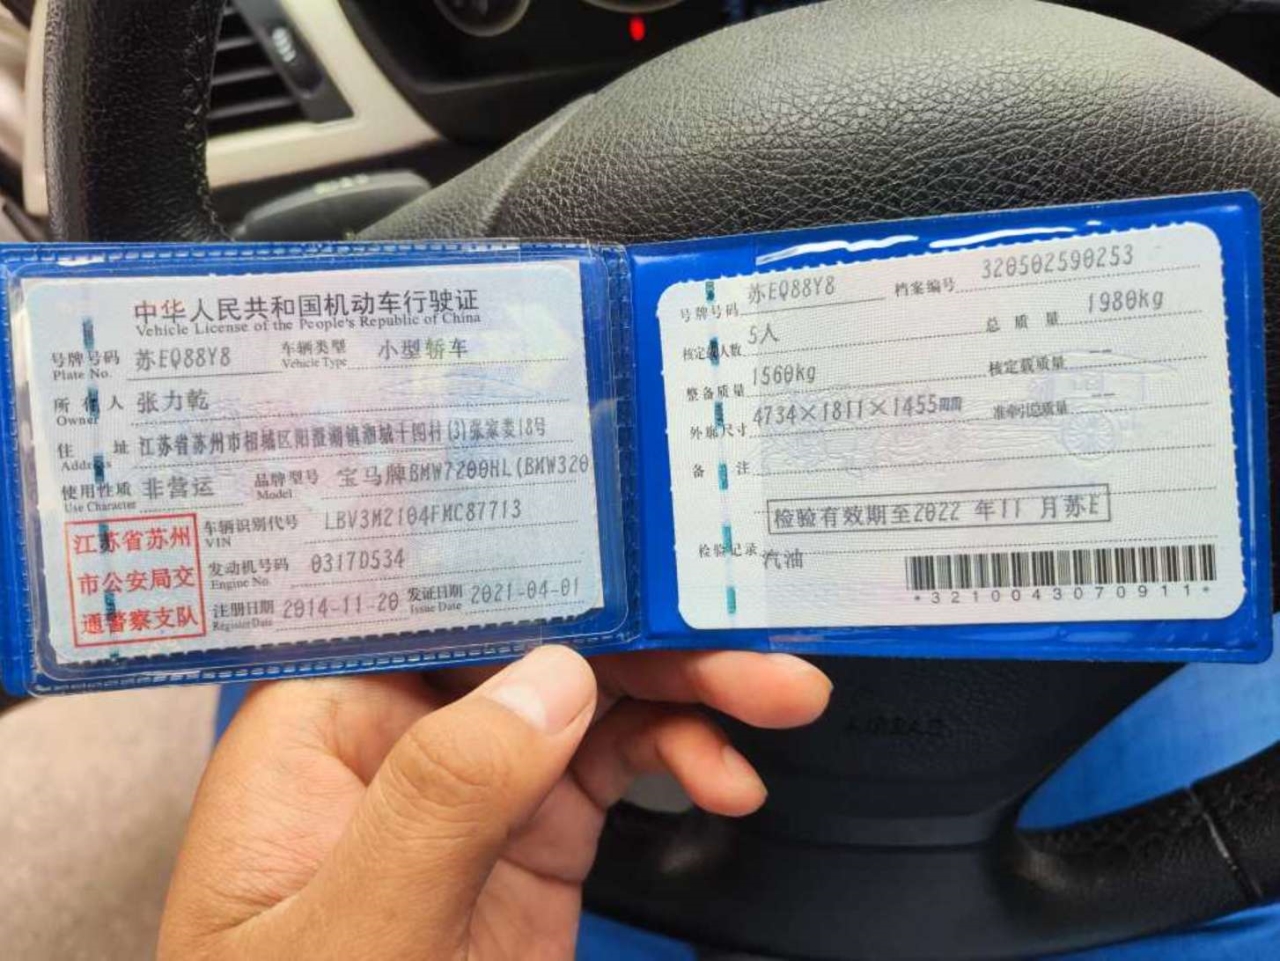 中华人民共和国机动车行驶证
Vehicle License of the People's Republic of China
号牌号码 苏EQ88Y8 车辆类型 小型轿车
Plate No. Vehicle Type
所有人 张力乾
Owner
住址 江苏省苏州市相城区阳澄湖镇湘城十图村(3)张家娄18号
Address
使用性质 非营运 品牌型号 宝马牌BMW7200HL(BMW320
Use Character Model
江苏省苏州
市公安局交
通警察支队
车辆识别代号 LBV3M2104FMC87713
VIN
发动机号码 0317D534
Engine No.
注册日期 2014-11-20 发证日期 2021-04-01
Register Date Issue Date
号牌号码 苏EQ88Y8 档案编号 320502590253
核定载人数 5人 总质量 1980kg
整备质量 1560kg 核定载质量 --
外廓尺寸 4734×1811×1455 准牵引总质量 --
备注
检验有效期至2022年11月苏E
检验记录 汽油
*3210043070911*